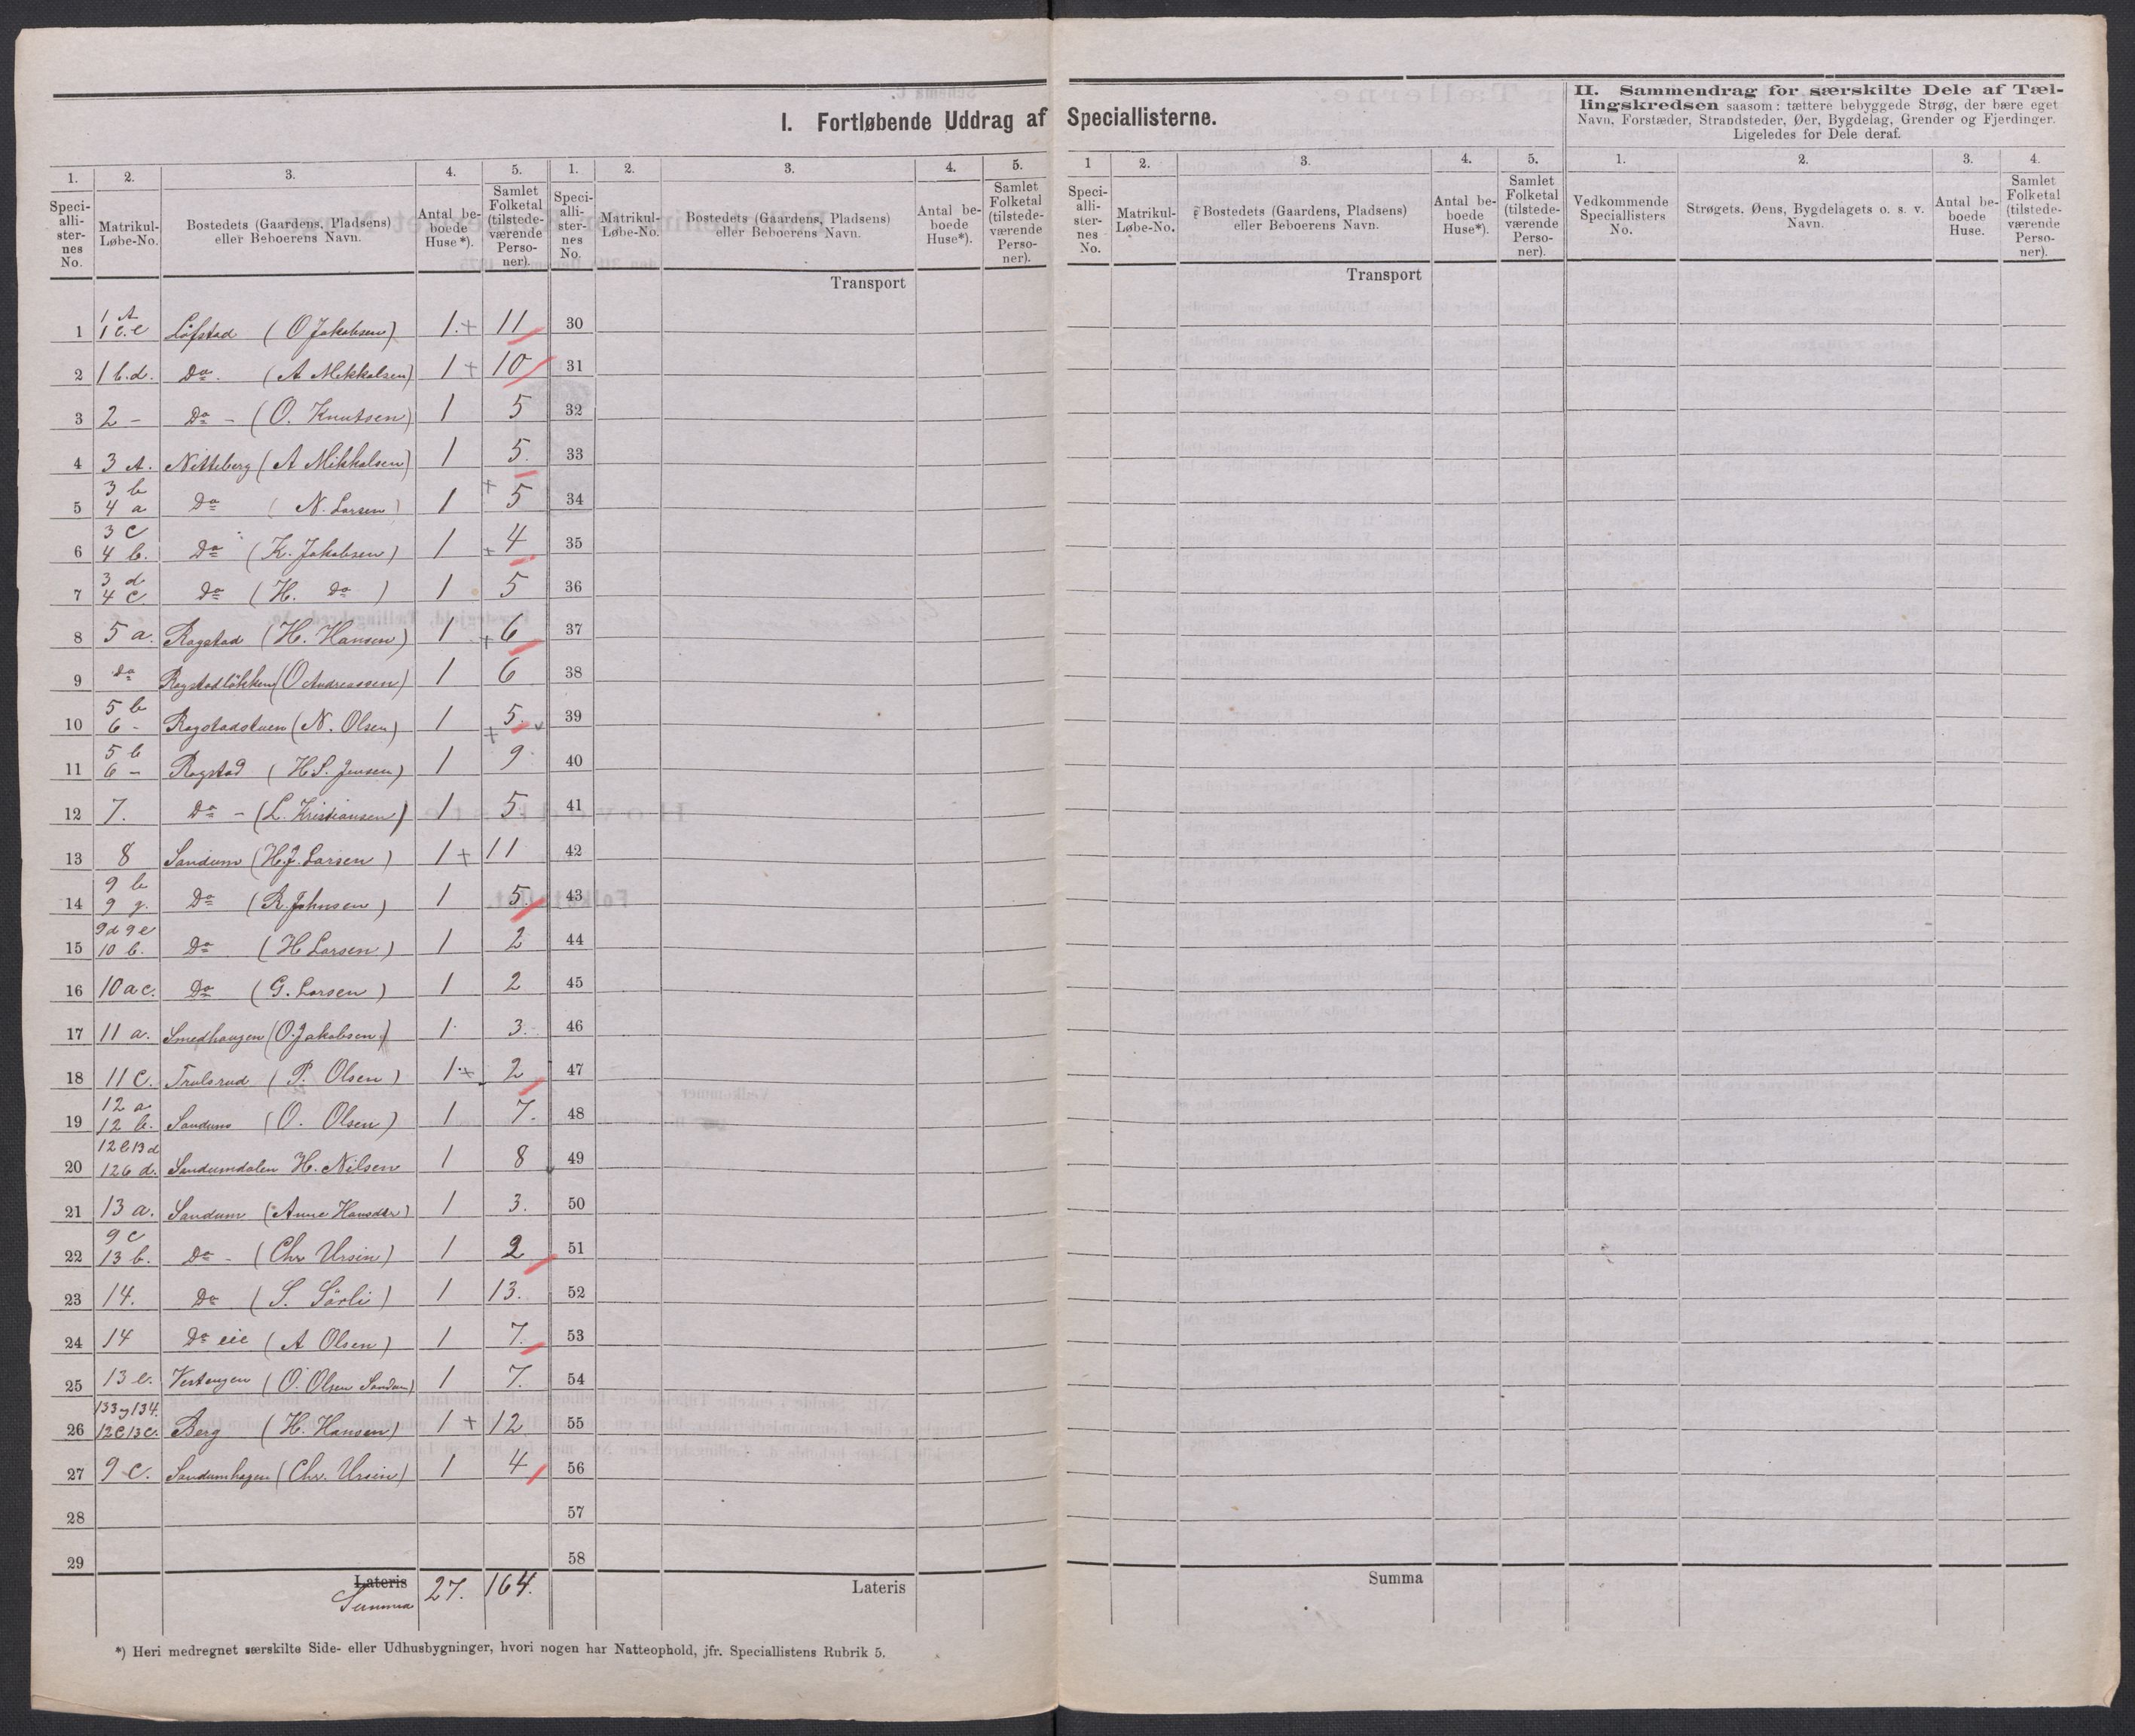 I. Fortløbende Uddrag af Speciallisterne.
II. Sammendrag for særskilte Dele af Tæl-
lingskredsen saasom: tættere bebyggede Strøg, der bære eget
Navn, Forstæder, Strandsteder, Øer, Bygdelag, Grender og Fjerdinger.
Ligeledes for Dele deraf.
1. 2. 3. 4. 5. 1. 2. 3. 4. 5. 1 2. 3. 4. 5. 1. 2. 3. 4.
Speci-
alli-
ster-
nes
No.
Matrikul-
Løbe-No.
Bostedets (Gaardens, Pladsens)
eller Beboerens Navn.
Antal be-
boede
Huse*).
Samlet
Folketal
(tilstede-
værende
Perso-
ner).
Speci-
alli-
ster-
nes
No.
Matrikul-
Løbe-No.
Bostedets (Gaardens, Pladsens)
eller Beboerens Navn.
Antal be-
boede
Huse*).
Samlet
Folketal
(tilstede-
værende
Perso-
ner).
Speci-
alli-
ster-
nes
No.
Matrikul-
Løbe-No.
Bostedets (Gaardens, Pladsens)
eller Beboerens Navn.
Antal be-
boede
Huse*).
Samlet
Folketal
(tilstede-
værende
Perso-
ner).
Vedkommende
Speciallisters
No.
Strøgets, Øens, Bygdelagets o. s. v.
Navn.
Antal be-
boede
Huse.
Samlet
Folketal
(tilstede-
værende
Perso-
ner).
Transport
Transport
1 1 A 1 c.e Löfstad (O Jakobsen) 1.+ 11 30
2 1 b.d. Do. (A Mikkelsen) 1 + 10 31
3 2 - Do - (O. Knutsen) 1 5 32
4 3 A. Nitteberg (A Mikkalsen) 1 5. 33
5 3 b 4 a Do (N. Larsen) 1 + 5 34
6 3 c 4 b. Do (K. Jakobsen) 1 + 4 35
7 3 d 4 c. Do (H. Do) 1 5 36
8 5 a. Ragstad (H. Hansen) 1 + 6 37
9 do Ragstadlökken (O Andreassen) 1 6 38
10 5 b 6 - Ragstadstuen (N. Olsen) 1 + 5. 39
11 5 b 6 - Ragstad (H S. Jensen) 1 9 40
12 7. Do - (L. Kristiansen) 1 5 41
13 8 Sandum (H.J. Larsen) 1 + 11 42
14 9 b 9 g. Do (R. Johnsen) 1 5. 43
15 9d 9e 10 b. Do (H Larsen) 1 2 44
16 10 a c. Do (G. Larsen) 1 2 45
17 11 a. Smedhaugen (O. Jakobsen) 1 3. 46
18 11 c. Trulsrud (P. Olsen) 1.+ 2 47
19 12 a 12 b. Sandum (O. Olsen) 1 7. 48
20 Sandumdalen H. Nilsen 1 8 49
21 13 a. Sandum (Anne Hansdtr) 1 3. 50
22 9 c 13 b. Do - (Chr Ursin) 1 2 51
23 14. Do (S. Sörli) 1 13. 52
24 14 Do eie (A Olsen) 1 7. 53
25 13 e. Vestengen (O. Olsen Sandum) 1 7. 54
26 133 y 134. 12 e 13 c. Berg (H. Hansen) 1 + 12 55
27 9 c. Sandumhagen (Chr. Ursin) 1 4 56
28 57
29 58
Lateris
Summa 27. 164.
Lateris
Summa
*) Heri medregnet særskilte Side- eller Udhusbygninger, hvori nogen har Natteophold, jfr. Speciallistens Rubrik 5.